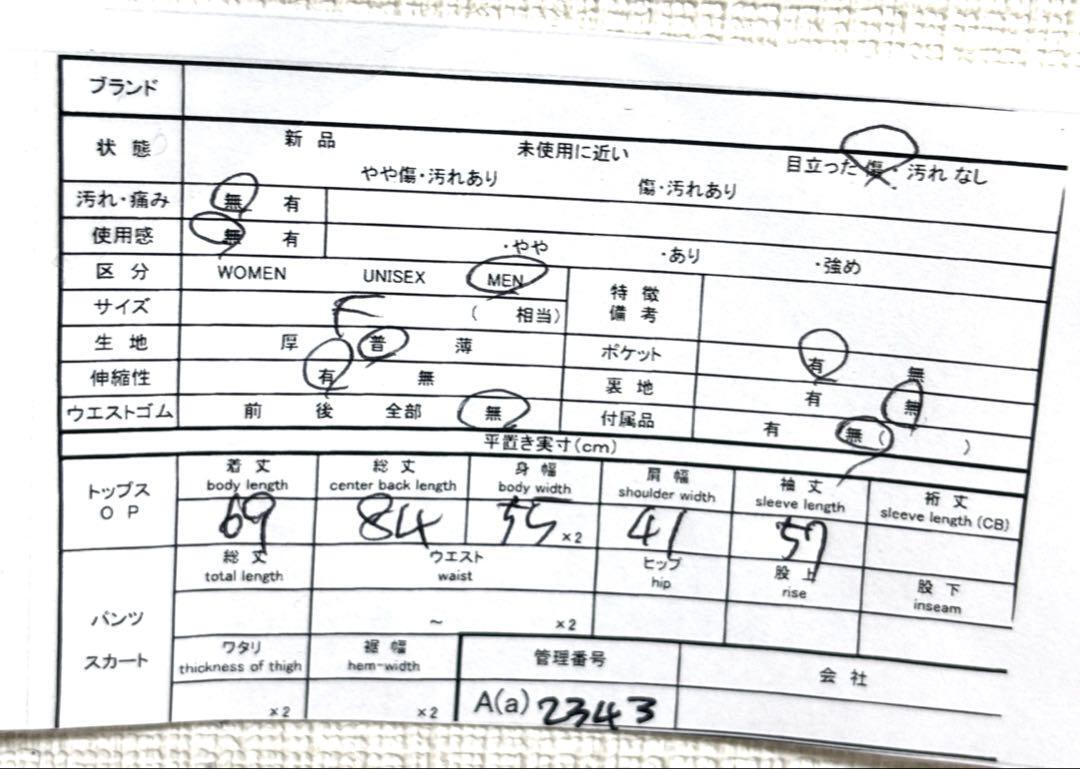 ブランド
状態 新品 未使用に近い 目立った 傷・汚れ なし
やや傷・汚れあり 傷・汚れあり
汚れ・痛み 無 有
使用感 無 有 ・やや ・あり ・強め
区分 WOMEN UNISEX MEN 特徴 備考
サイズ F ( 相当)
生地 厚 普 薄 ポケット 有 無
伸縮性 有 無 裏地 有 無
ウエストゴム 前 後 全部 無 付属品 有 無 ( )
平置き実寸(cm)
トップス OP 着丈 総丈 身幅 肩幅 袖丈 裄丈
body length center back length body width shoulder width sleeve length sleeve length (CB)
69 84 55 ×2 41 57
総丈 ウエスト ヒップ 股上 股下
total length waist hip rise inseam
パンツ スカート ~ ×2
ワタリ 裾幅 管理番号 会社
thickness of thigh hem-width
×2 ×2 A(a) 2343